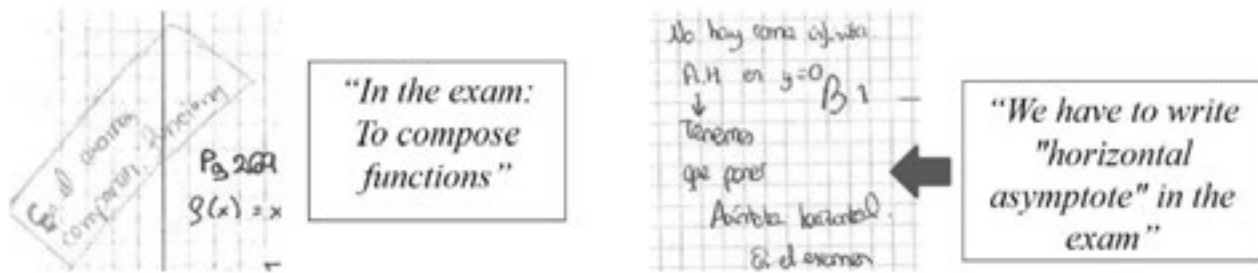 componer funciones
Pg 269
g(x) = x
"In the exam:
To compose
functions"
No hay rama infinita.
A.H en y=0
B1
Tenemos
que poner
Asíntota horizontal.
En el examen
"We have to write
"horizontal
asymptote" in the
exam"